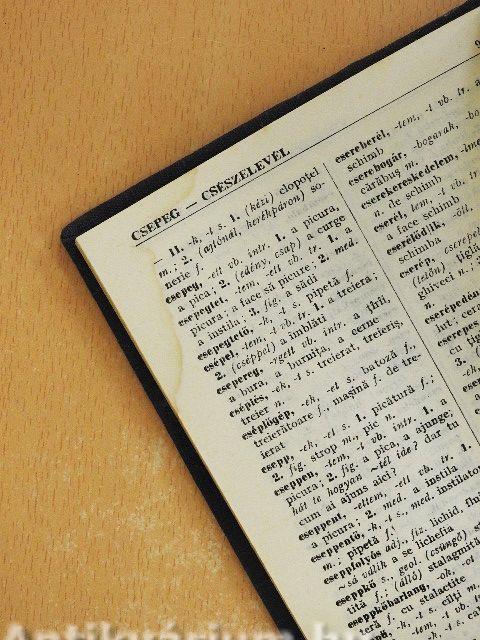 CSEPEG — CSÉSZELEVÉL
— II. -k, -t s. 1. (kézi) clopoțel
m.; 2. (ajtónál, kerékpáron) so-
nerie f.
csepeg, -ett vb. intr. 1. a picura,
a pica; 2. (edény, csap) a curge
csepegtet, -tem, -t vb. tr. 1. a
picura; a face să picure; 2. med.
a instila; 3. fig. a sădi
csepegtető, -k, -t s. pipetă f.
csépel, -tem, -t vb. tr. 1. a treiera;
2. (cséppel) a îmblăti
csepereg, -rgett vb. intr. a țîrîi,
a bura, a burnița, a cerne
cséplés, -ek, -t s. treierat, treieriș,
treier n.
cséplőgép, -ek, -et s. batoză f.,
treierătoare f., mașină f. de tre-
ierat
csepp, -ek, -et s. 1. picătură f.;
2. fig. strop m., pic n.
cseppen, -tem, -t vb. intr. 1. a
picura; 2. fig. a pica, a ajunge;
hát te hogyan ~tél ide? dar tu
cum ai ajuns aici?
cseppent, -ettem, -ett vb. tr. 1.
a picura; 2. med. a instila
cseppentő, -k, -t s. med. instilator
m.; pipetă f.
cseppfolyós adj., fiz. lichid,
~sá válik a se lichefia
cseppkő s., geol. (csüngő)
tită f.; (álló) stalagmită
cseppkőbarlang, -ok, -ot
teră f. cu stalactite
csereberél, -tem, -t vb. tr. a
schimb
cserebogár, -bogarak,
cărăbuș m.
cserekereskedelem,
n. de schimb
cserél, -tem, -t vb. tr.
a face schimb
cserélődik, -ött.
schimba
cserép, cserepe
(telőn) țiglă
ghiveci n.;
cserépedén
lut; cera
cserepes
cu țig
3. (
Antikvárium.hu